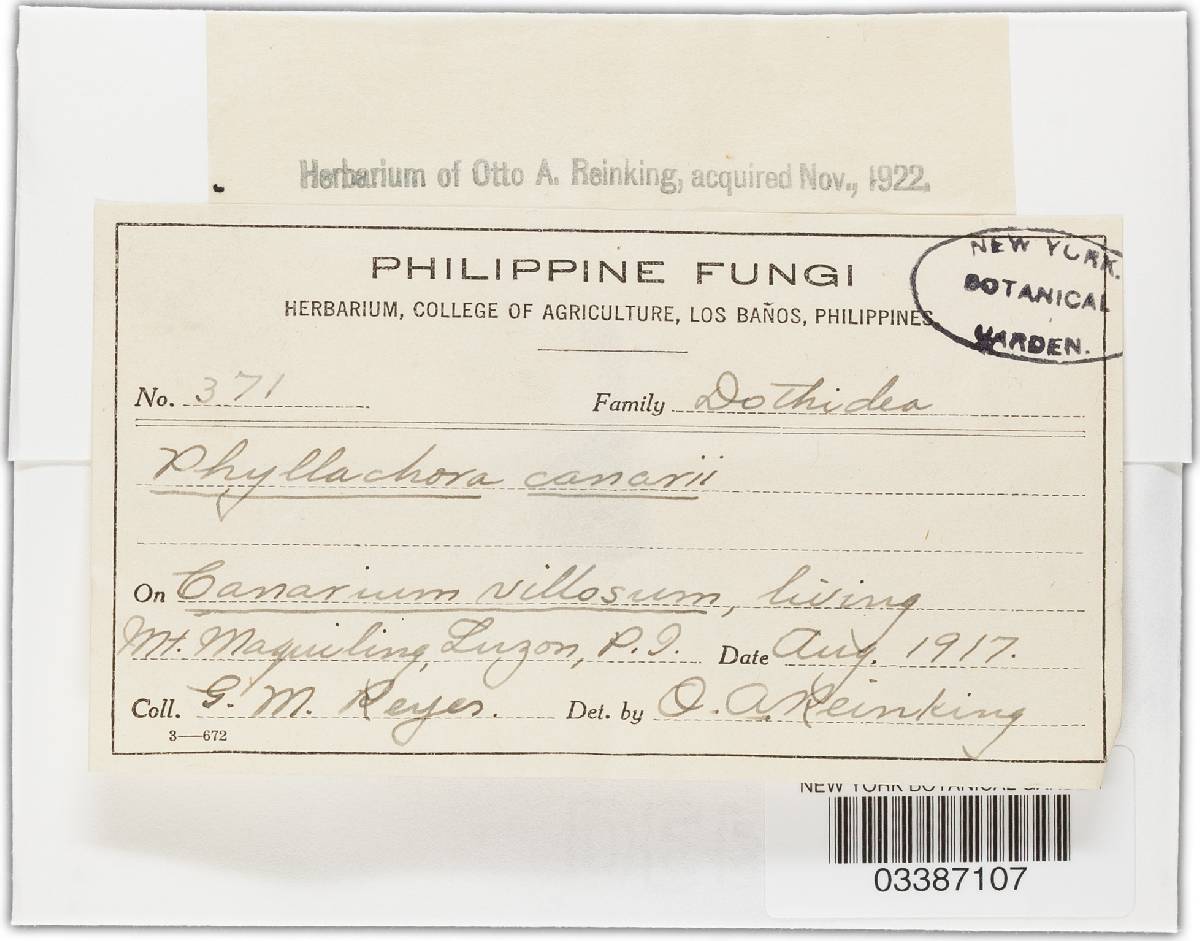 Herbarium of Otto A. Reinking, acquired Nov., 1922.
PHILIPPINE FUNGI
HERBARIUM, COLLEGE OF AGRICULTURE, LOS BAÑOS, PHILIPPINES
NEW YORK
BOTANICAL
GARDEN.
No. 371 Family Dothidea
Phyllachora canarii
On Canarium villosum, living
Mt. Maquiling, Luzon, P.I. Date Aug. 1917.
Coll. G. M. Reyes. Det. by O. A. Reinking
3—672
NEW YORK BOTANICAL GARDEN
03387107